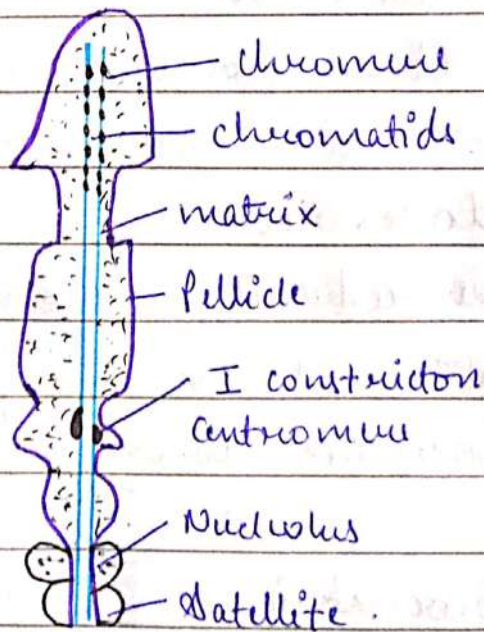 chromere
chromatids
matrix
Pellicle
I constricton
Centromere
Nucleolus
Satellite.